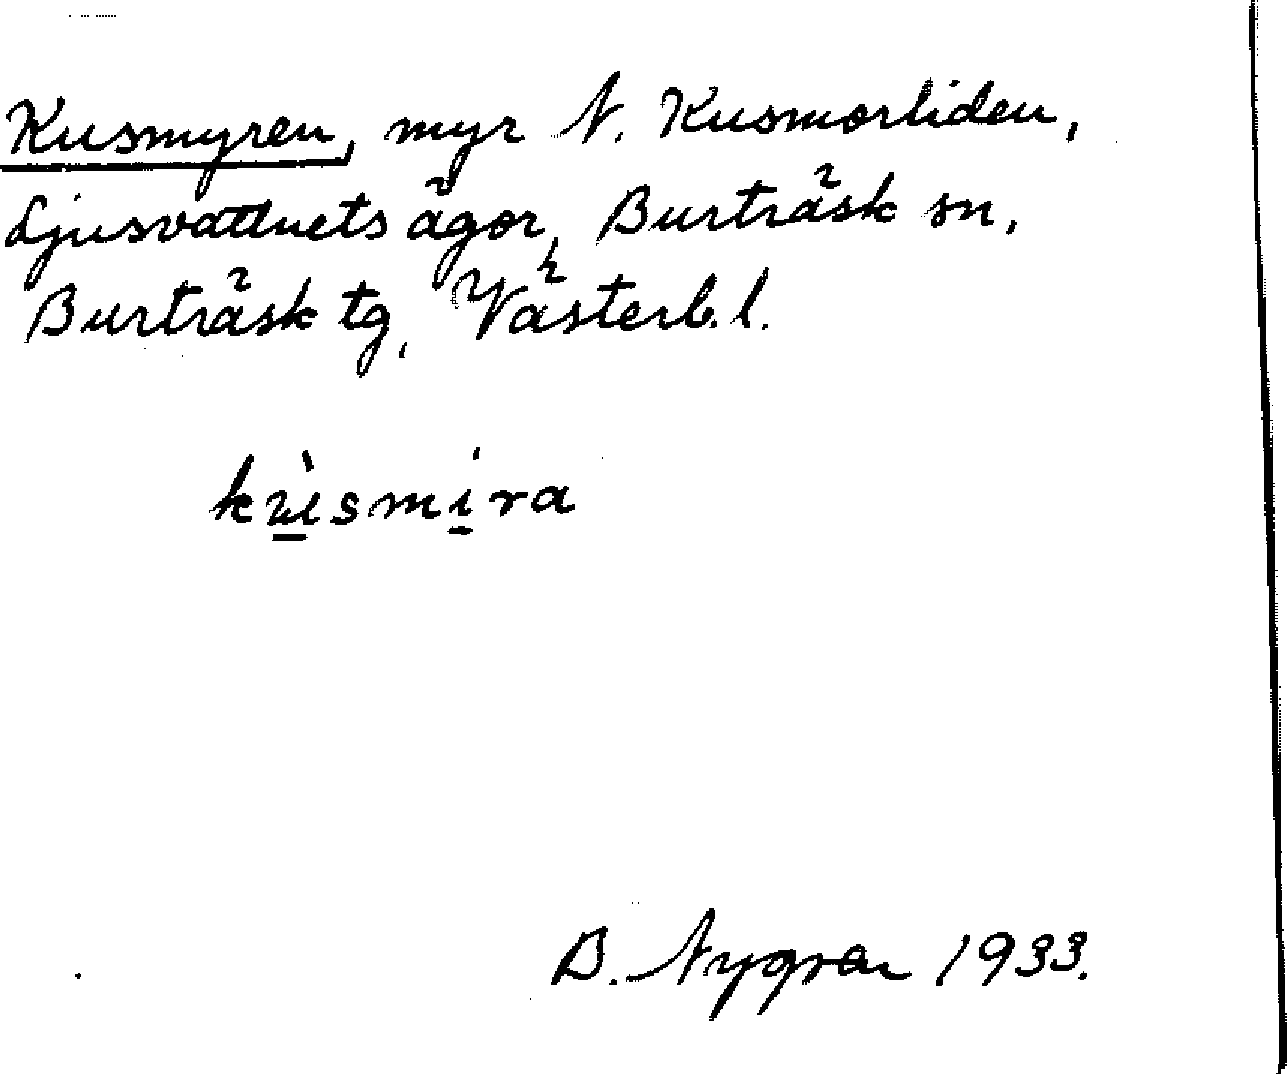 Kusmyren, myr N. Kusmorliden,
Ljusvattnets ägor, Burträsk sn,
Burträsk tg, Västerb. l.
kùsmíra
B. Nygren 1933.